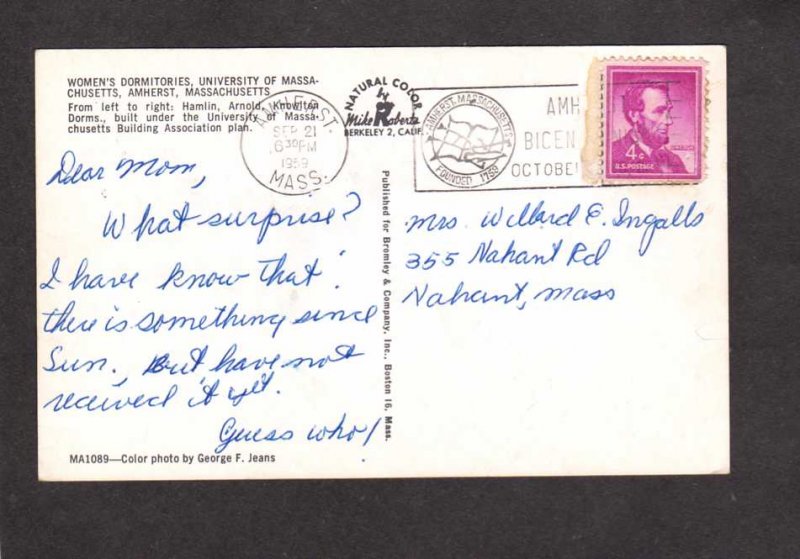 WOMEN'S DORMITORIES, UNIVERSITY OF MASSA-
CHUSETTS, AMHERST, MASSACHUSETTS
From left to right: Hamlin, Arnold, Knowlton
Dorms., built under the University of Massa-
chusetts Building Association plan.
AMHERST
SEP 21
6 30 PM
1959
MASS.
NATURAL COLOR
by
Mike Roberts
BERKELEY 2, CALIF.
AMHERST, MASSACHUSETTS
FOUNDED 1759
AMH
BICEN
OCTOBER
4¢
U.S. POSTAGE
Dear Mom,
What surprise?
I have know that
there is something since
Sun., But have not
received it yet.
Guess who!
Published for Bromley & Company, Inc., Boston 16, Mass.
Mrs. Willard E. Ingalls
355 Nahant Rd
Nahant, Mass
MA1089—Color photo by George F. Jeans